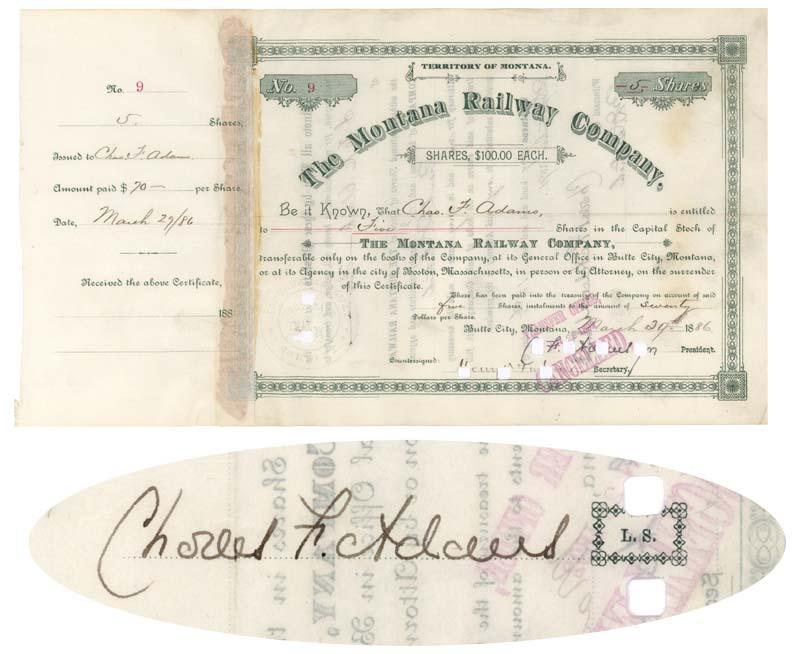 No. 9
5. Shares,
Issued to Chas. F. Adams.
Amount paid $ 70 — per Share.
Date, March 29/86
Received the above Certificate,
188
TERRITORY OF MONTANA.
No. 9
-5- Shares
The Montana Railway Company.
SHARES, $100.00 EACH.
Be it Known, That Chas. F. Adams, is entitled
to Five Shares in the Capital Stock of
THE MONTANA RAILWAY COMPANY,
transferable only on the books of the Company, at its General Office in Butte City, Montana,
or at its Agency in the city of Boston, Massachusetts, in person or by Attorney, on the surrender
of this Certificate.
There has been paid into the treasury of the Company on account of said
five Shares, instalments to the amount of seventy
Dollars per Share.
Butte City, Montana, March 29th 1886
President.
Countersigned:
Secretary.
TRANSFER OFFICE
CANCELLED
Charles F. Adams
L. S.